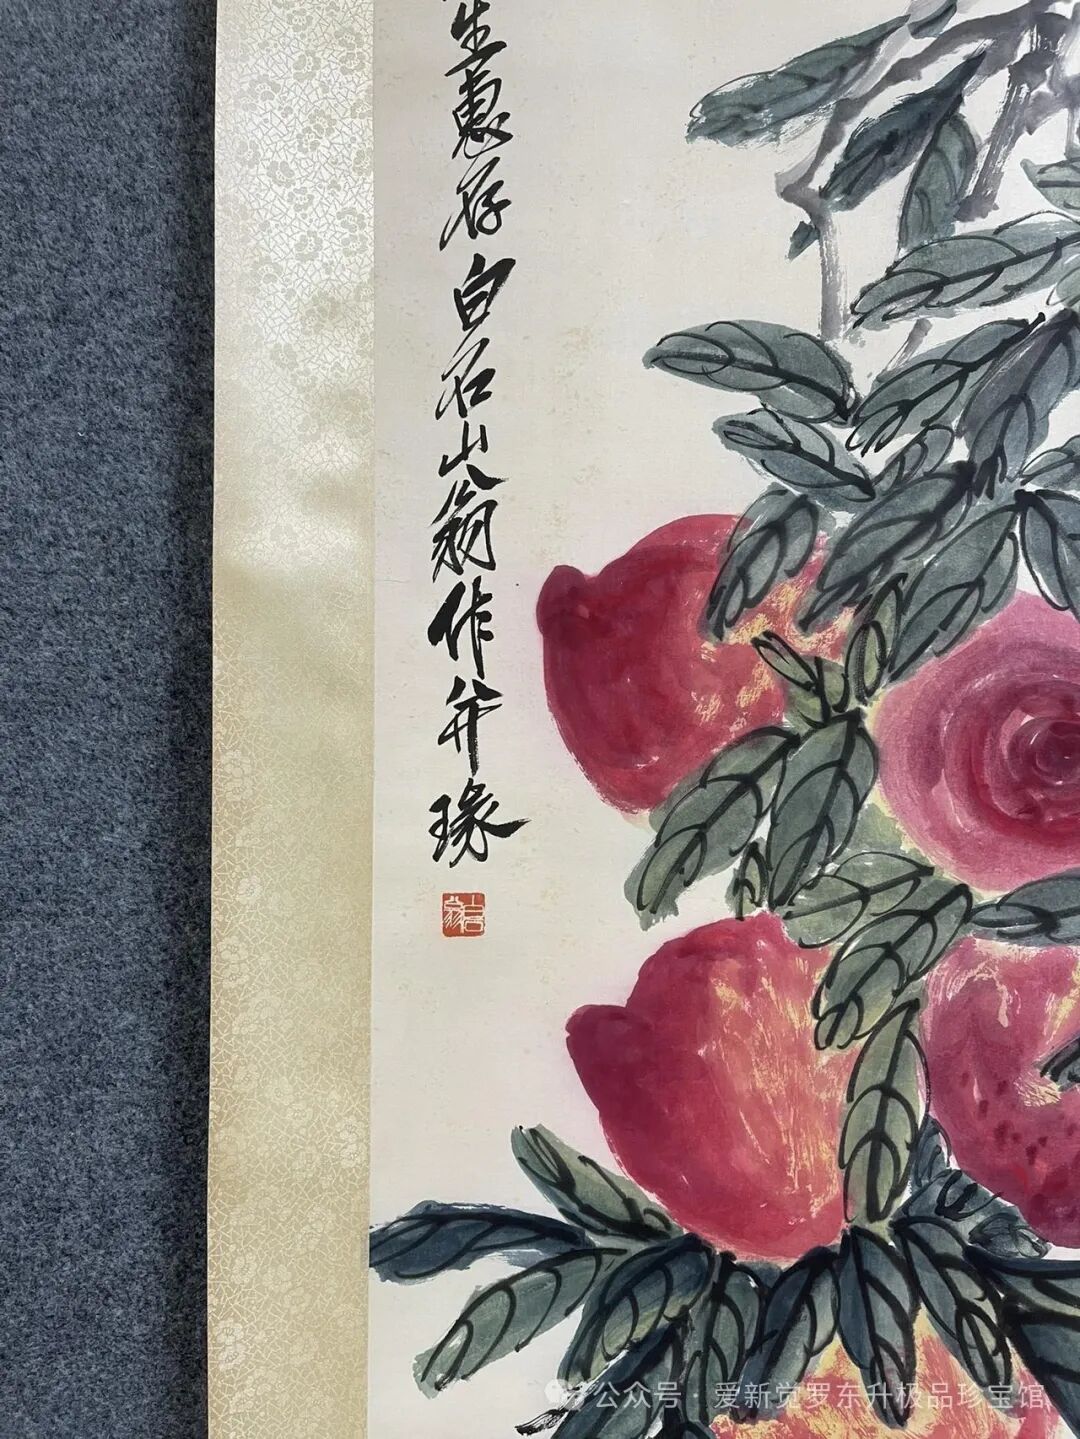 生惠存白石山翁作并璟
白石翁
公众号·爱新觉罗东升极品珍宝馆